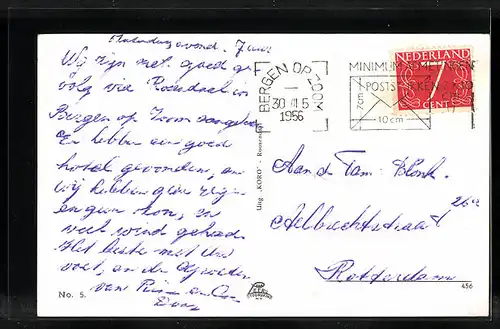 avond. 7 uur
Wij zijn met goed ge
volg via Roosendaal in
Bergen op Zoom aangekomen
En hebben een goed
hotel gevonden, en
wij hebben geen regen
en geen zon, en
veel wind gehad.
Het beste met uw
voet, en de groeten
van
No. 5.
Uitg. „KORO" - Roosendaal
BERGEN OP ZOOM
30 VI 5
1956
MINIMUM
POSTSTUKKEN
7cm
10cm
NEDERLAND
7
CENT
Aan de Fam. Blonk.
Aelbrechtstraat 26
Rotterdam
456